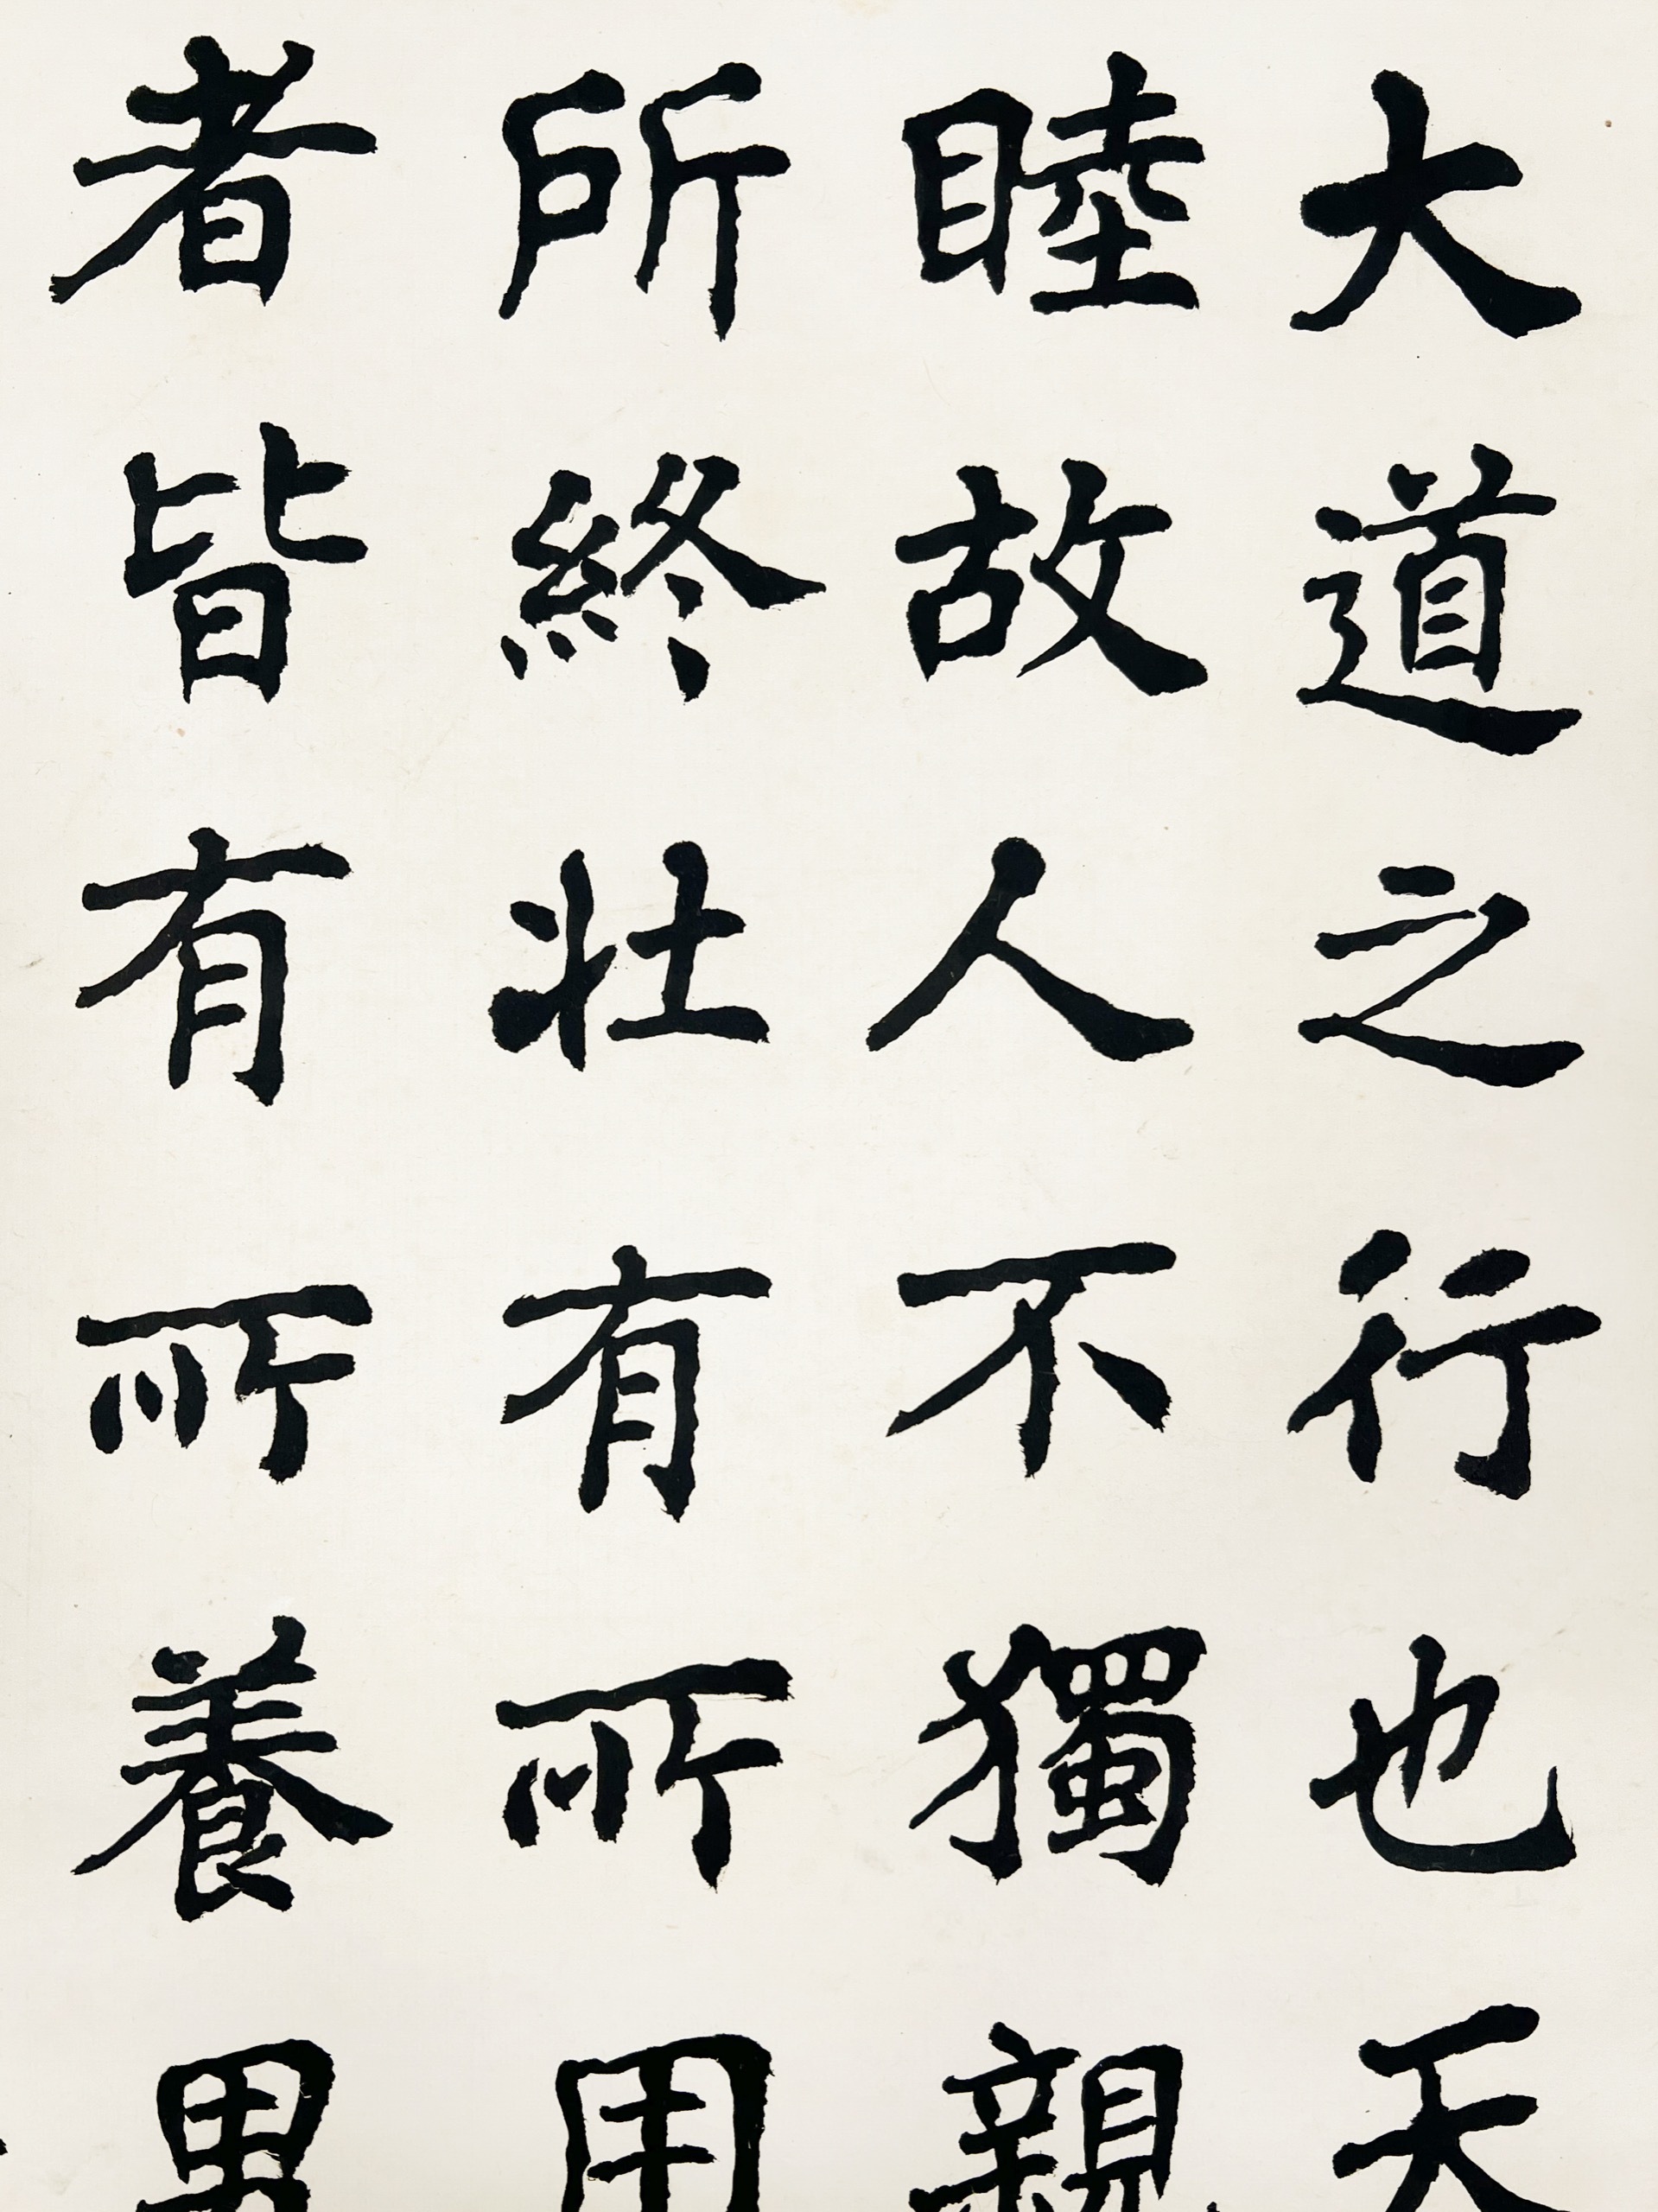 大道之行也天
睦故人不獨親
所終壯有所用
者皆有所養男